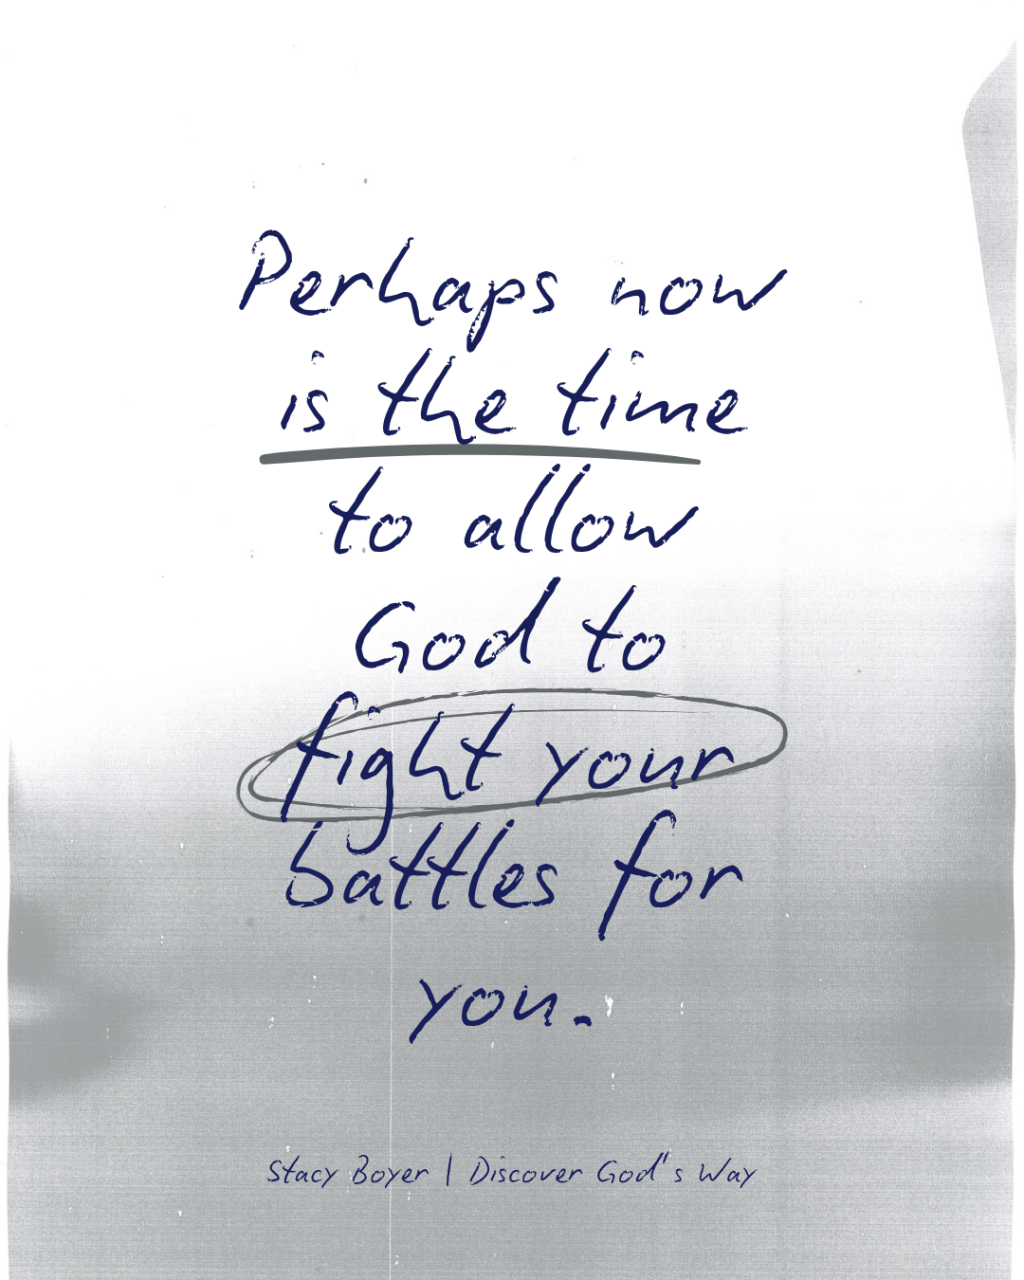 Perhaps now
is the time
to allow
God to
fight your
battles for
you.
Stacy Boyer | Discover God's Way